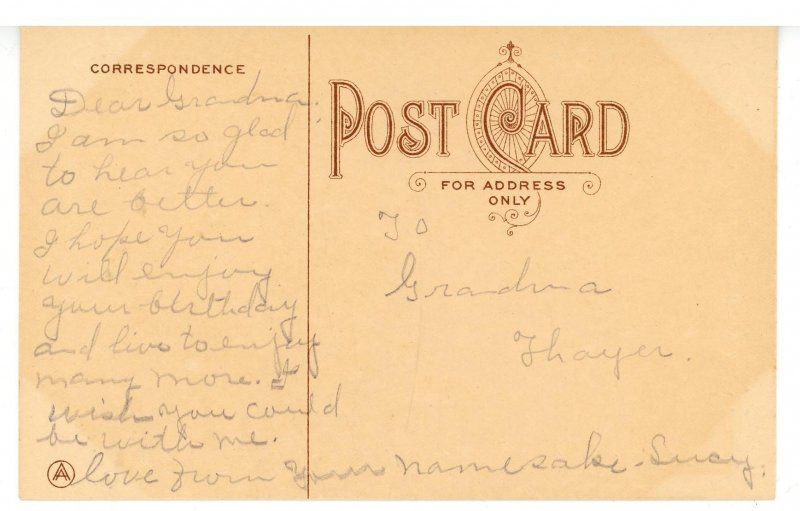 CORRESPONDENCE
Dear Grandma.
I am so glad
to hear you
are better.
I hope you
will enjoy
your birthday
and live to enjoy
many more. I
wish you could
be with me.
love from your namesake. Lucy.
AA
POST CARD
FOR ADDRESS
ONLY
To
Grandma
Thayer.